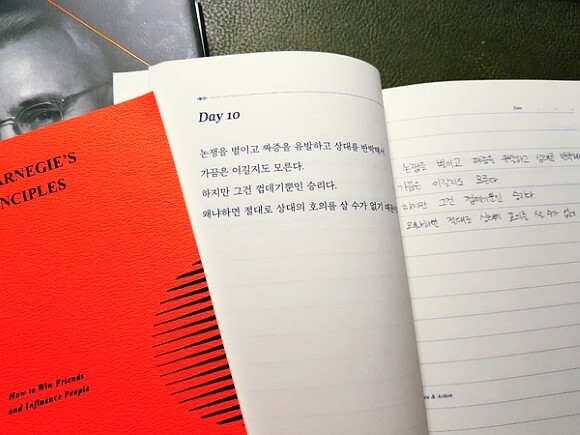 ARNEGIE'S
NCIPLES
How to Win Friends
and Influence People
Day 10
논쟁을 벌이고 짜증을 유발하고 상대를 반박해서
가끔은 이길지도 모른다.
하지만 그건 껍데기뿐인 승리다.
왜냐하면 절대로 상대의 호의를 살 수가 없기 때문
Date
논쟁을 벌이고 짜증을 유발하고 상대를 반박해
가끔은 이길지도 모른다.
하지만 그건 껍데기뿐인 승리다.
왜냐하면 절대로 상대의 호의를 살 수가 없기
& Action